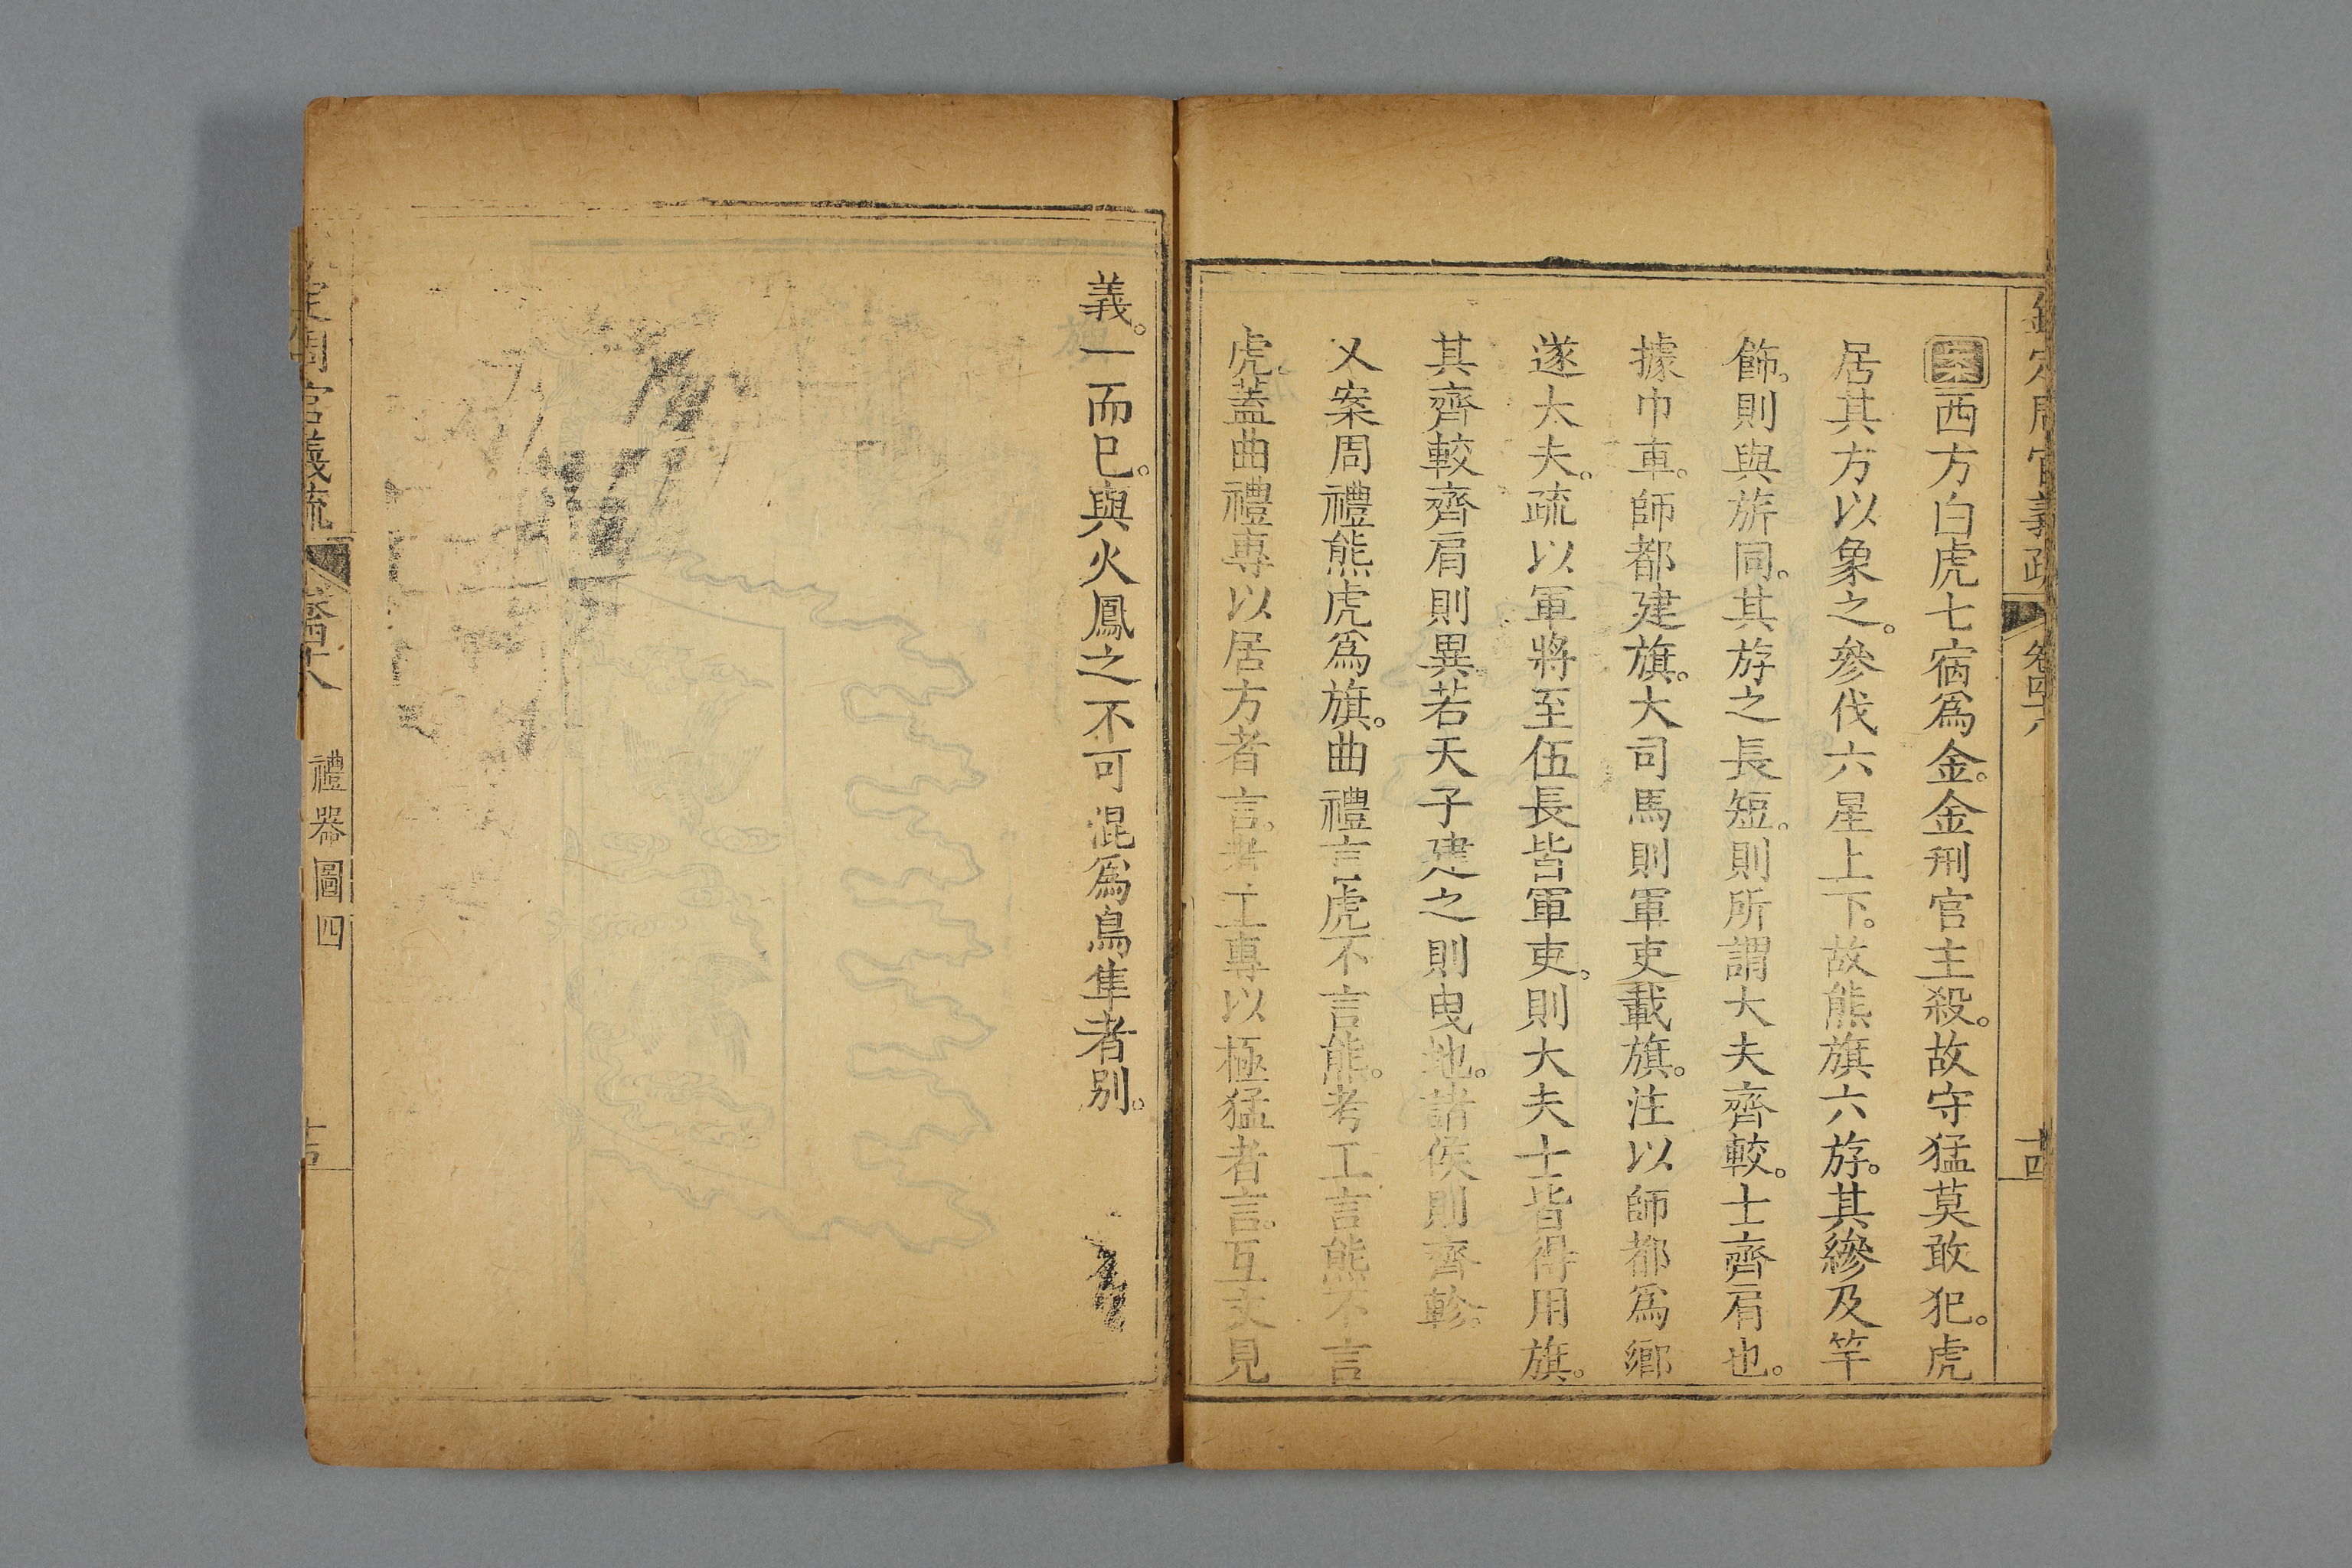 欽定周官義疏 卷四十八 十四
案西方白虎七宿爲金。金刑官主殺。故守猛莫敢犯。虎
居其方以象之。參伐六星上下。故熊旗六斿。其縿及竿
飾。則與旂同。其斿之長短。則所謂大夫齊較。士齊肩也。
據巾車。師都建旗。大司馬則軍吏載旗。注以師都爲鄉
遂大夫。疏以軍將至伍長皆軍吏。則大夫士皆得用旗。
其齊較齊肩則異。若天子建之則曳地。諸侯則齊軫。
又案周禮熊虎爲旗。曲禮言虎不言熊。考工言熊不言
虎。蓋曲禮專以居方者言。考工專以極猛者言。互文見
義。一而已。與火鳳之不可混爲鳥隼者別。
定周官義疏 卷四十八 禮器圖四